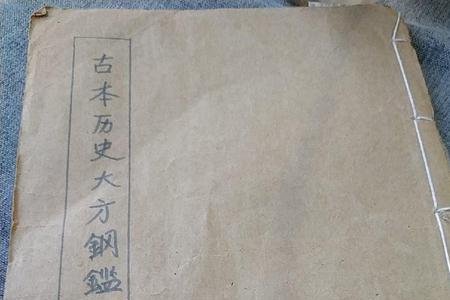 古本历史大方钢鑑